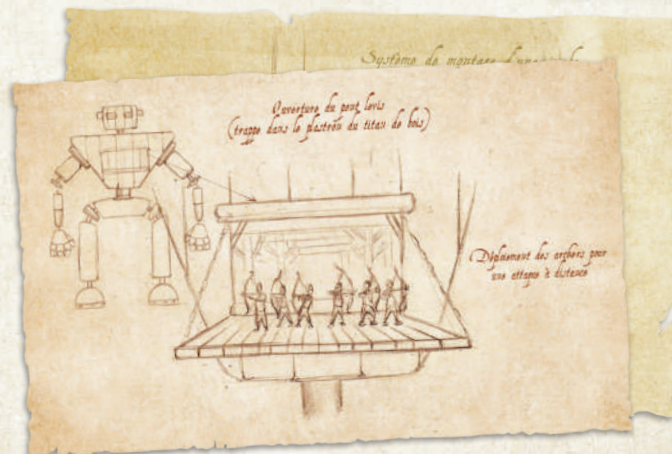 Système de montage
Ouverture du pont levis
(trappe dans le plastron du titan de bois)
Déploiement des archers pour
une attaque à distance